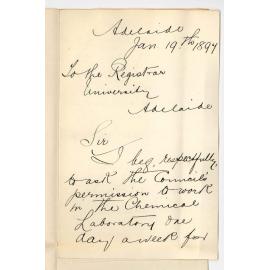 Adelaide
Jan 19th 1897
To the Registrar
University
Adelaide
Sir
I beg respectfully
to ask the Council's
permission to work
in the Chemical
Laboratory one
day a week for